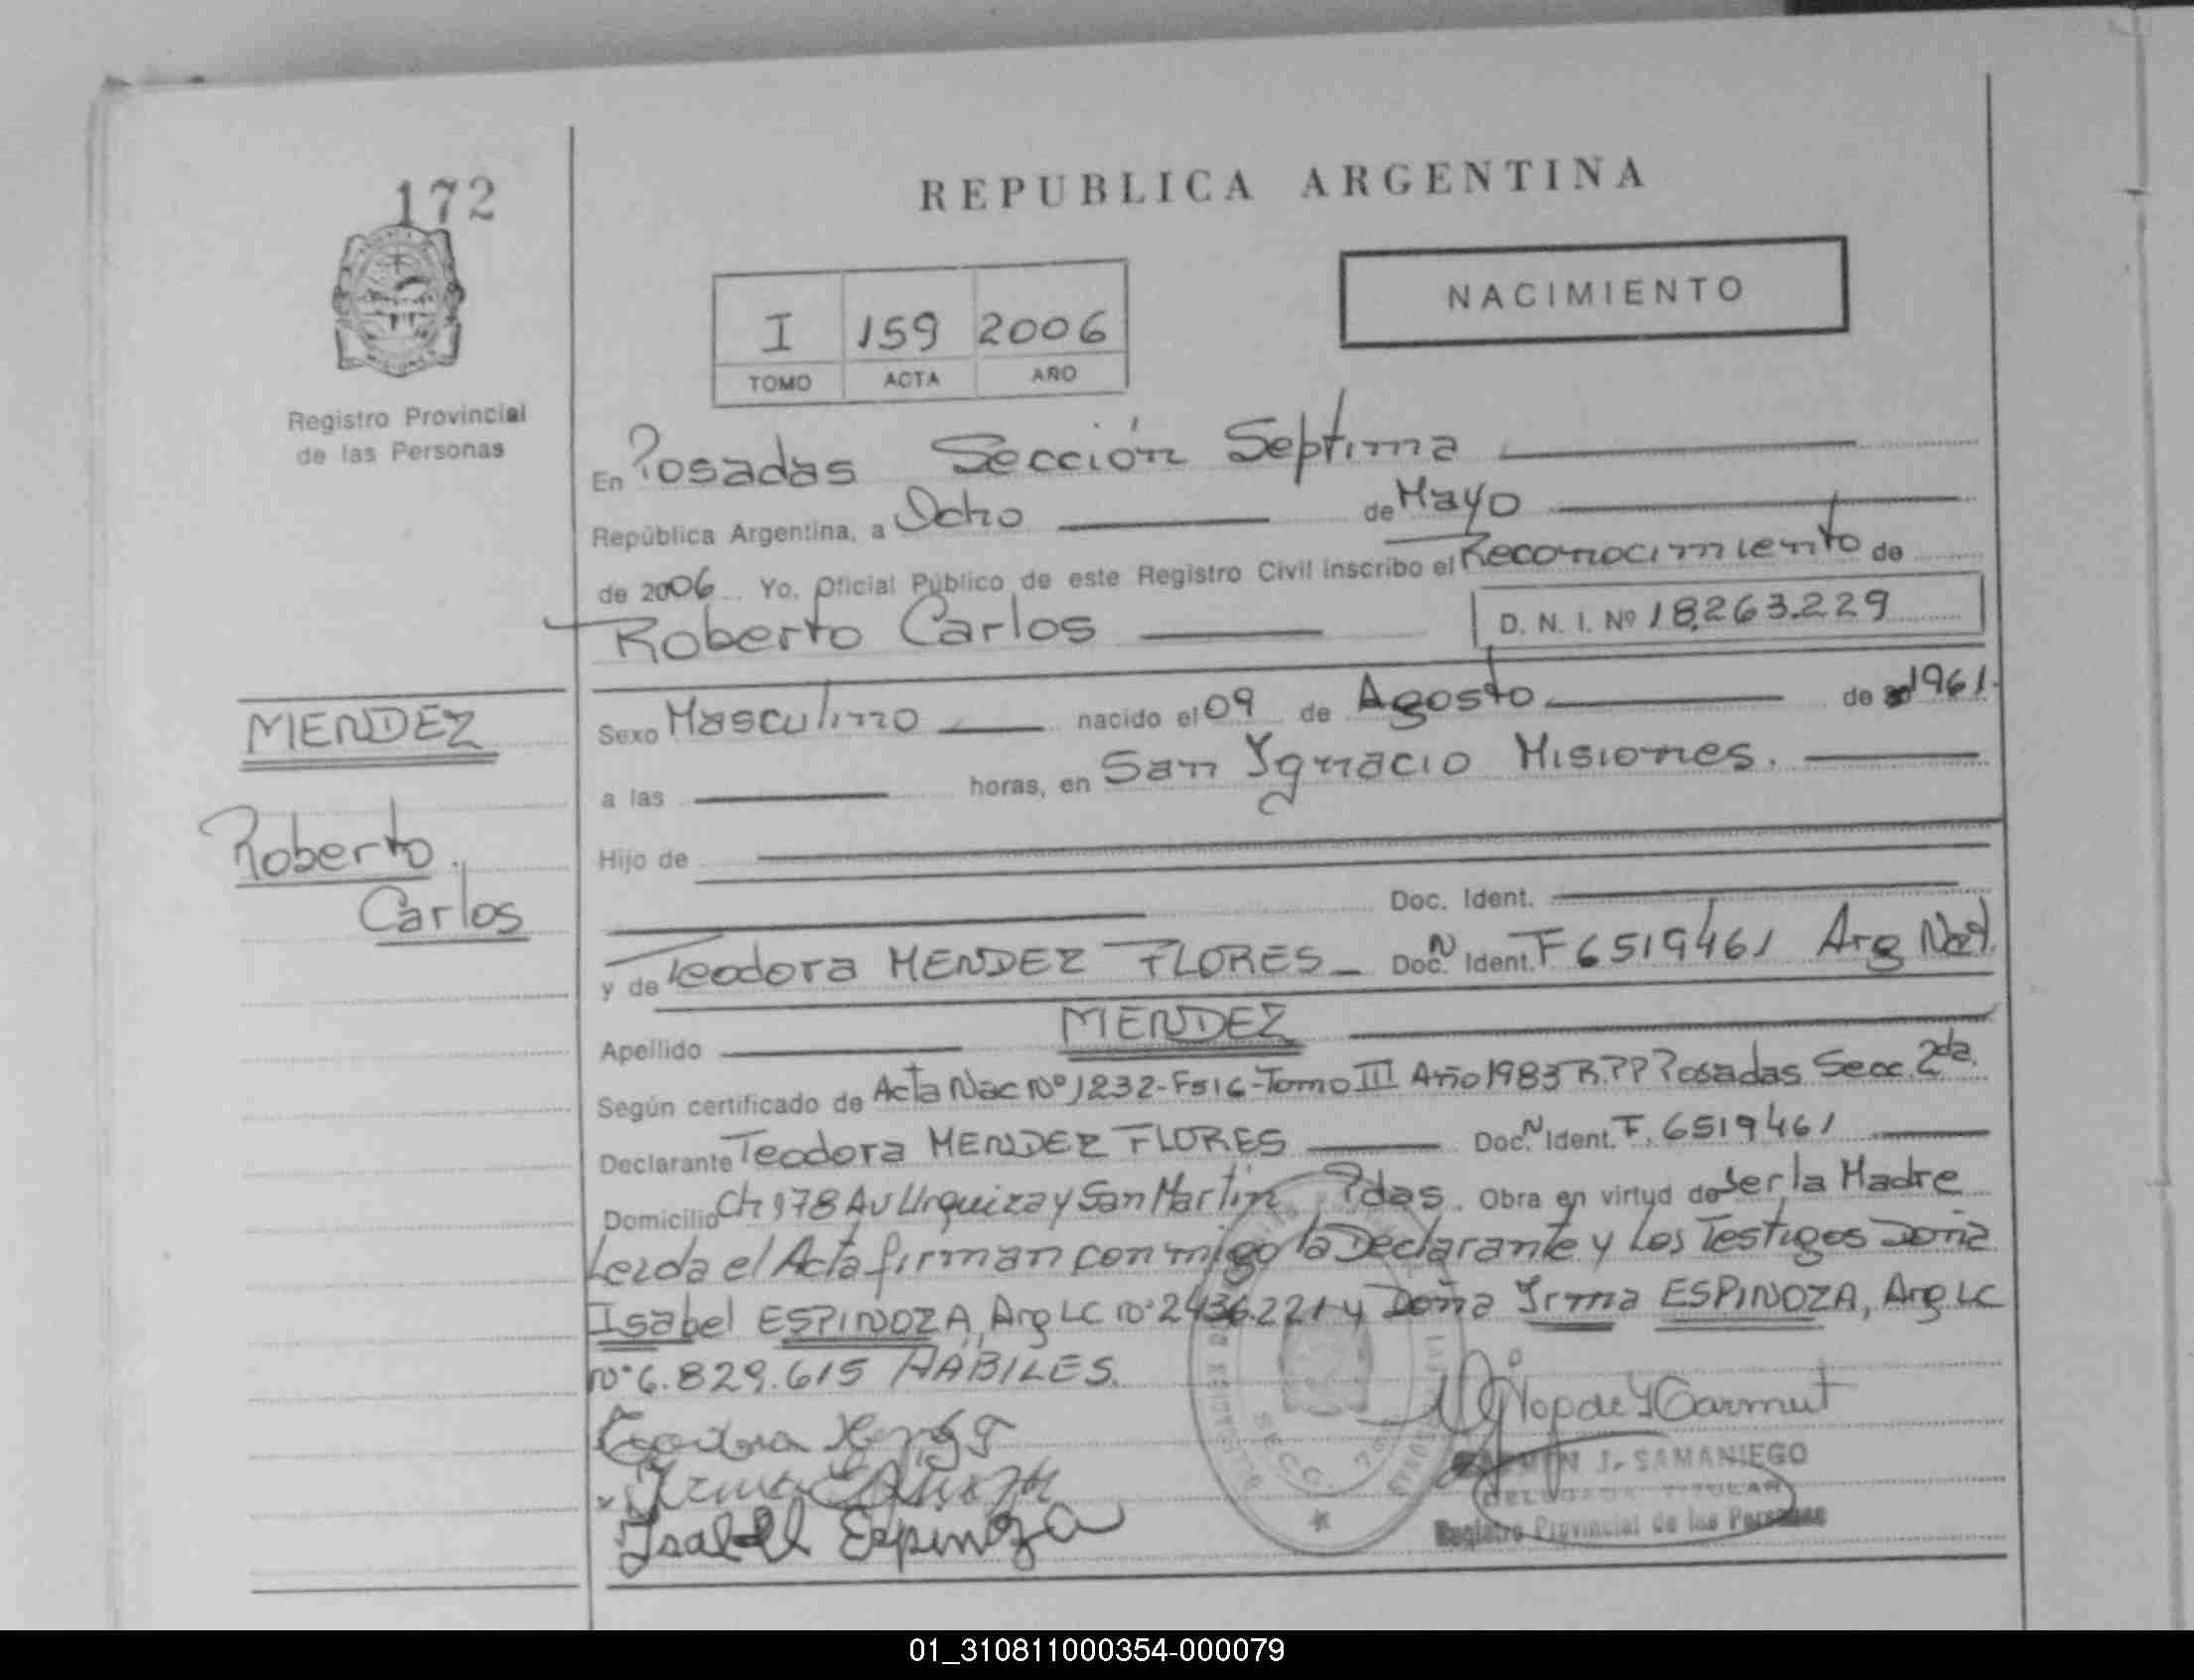 172
REPUBLICA ARGENTINA
NACIMIENTO
I 159 2006
TOMO ACTA AÑO
Registro Provincial
de las Personas
En Posadas Sección Septima
República Argentina, a Ocho de Mayo
de 2006 Yo, Oficial Público de este Registro Civil inscribo el Reconocimiento de
Roberto Carlos D. N. I. Nº 18.263.229
MENDEZ
Roberto
Carlos
Sexo Masculino nacido el 09 de Agosto de 1961.
a las horas, en San Ygnacio Misiones.
Hijo de
Doc. Ident.
y de Teodora MENDEZ FLORES Doc. N Ident. F 6519461 Arg Nat.
Apellido MENDEZ
Según certificado de Acta Nac Nº 1232-F516-Tomo III Año 1983 R.P.P Posadas Secc. 2da.
Declarante Teodora MENDEZ FLORES Doc. N Ident. F. 6519461
Domicilio Ch 178 Av Urquiza y San Martin Pdas. Obra en virtud de ser la Madre
Leida el Acta firman conmigo la Declarante y Los Testigos Doña
Isabel ESPINOZA, Arg LC nº 2.436.221 y Doña Irma ESPINOZA, Arg LC
Nº 6.829.615 HABILES.
Isabel Espinoza
SECC. 7
J. SAMANIEGO
DELEGADA TITULAR
Registro Provincial de las Personas
01_310811000354-000079